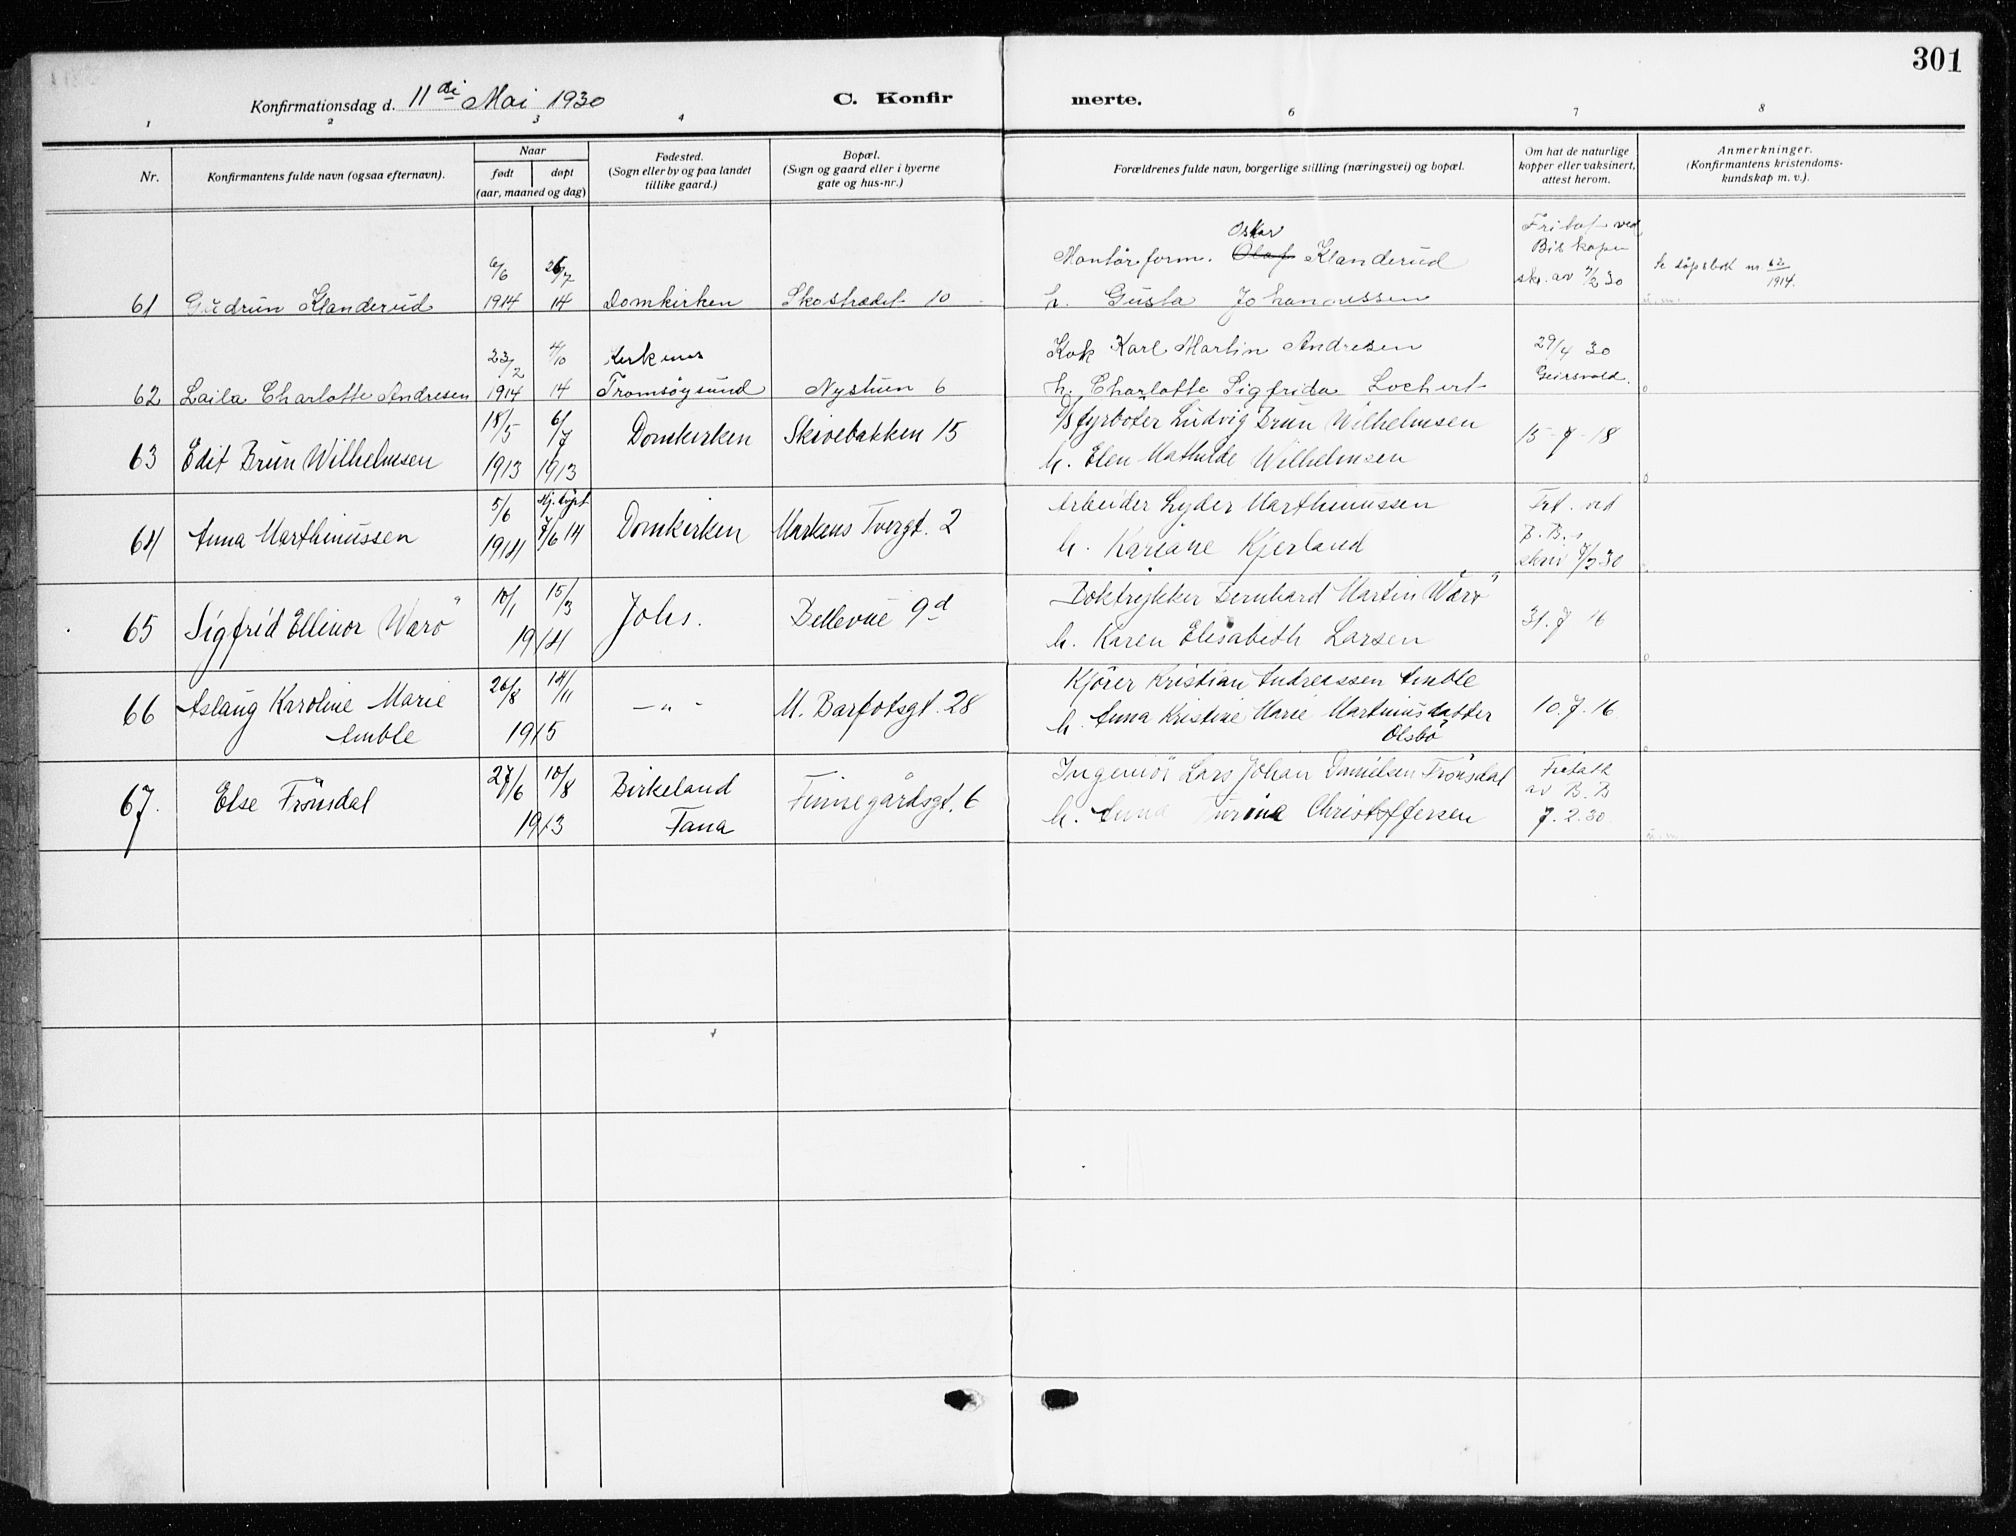 301
Konfirmationsdag d. 11 te Mai 1930
C. Konfir merte.
1 2 3 4 6 7 8
Nr.
Konfirmantens fulde navn (ogsaa efternavn).
Naar
født døpt
(aar, maaned og dag)
Fødested.
(Sogn eller by og paa landet
tillike gaard.)
Bopæl.
(Sogn og gaard eller i byerne
gate og hus-nr.)
Forældrenes fulde navn, borgerlige stilling (næringsvei) og bopæl.
Om hat de naturlige
kopper eller vaksinert,
attest herom.
Anmerkninger.
(Konfirmantens kristendoms-
kundskap m. v.).
61 Gudrun Klanderud
6/6 1914
26/7 14
Domkirken
Skostrædet 10
Oskar
Montørform. Olaf Klanderud
h. Gusta Johannessen
Fritat ved
Biskopen
skr. av 7/2 30
Se døpsbok nr. 62/1914.
62 Laila Charlotte Andresen
23/2 1914
4/10 14
Kirkenes
Tromsøysund
Nystuen 6
Kok Karl Martin Andresen
h. Charlotte Sigfrida Lochert
29/4 30
Geirsvold.
63 Edit Brun Wilhelmsen
18/5 1913
6/7 1913
Domkirken
Skivebakken 15
Fyrbøter Ludvig Brun Wilhelmsen
h. Elen Mathilde Wilhelmsen
15-7-18
64 Anna Marthinussen
5/6 1914
Hj. døpt
7/6 14
Domkirken
Markens Tvergt. 2
Arbeider Lyder Marthinussen
h. Kariane Kjerland
Frt. ved
B. B.s
skriv 7/2 30
65 Sigfrid Ellinor Warö
10/1 15/3
1914
Johs.
Bellevue 9d
Boktrykker Bernhard Martin Warö
h. Karen Elisabeth Larsen
31. 7 16
66 Aslaug Karoline Marie
Amble
26/8 14/11
1915
—„—
M. Barfotsgt. 28
Kjører Kristian Andreassen Amble
h. Anna Kristine Marie Martinusdatter
Olsbö
10. 7. 16
67. Else Frønsdal
27/6 10/8
1913
Birkeland
Fana
Finnegårdsgt. 6
Ingeniør Lars Johan Danielsen Frønsdal
h. Anna Turine Christoffersen
Fritatt
av B. B
7. 2. 30.